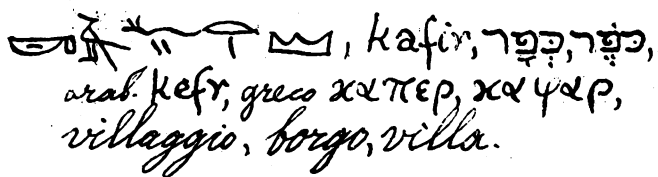 , kafir, כְּפָר, כֹּפֶר,
arab. kefr, greco καπερ, καψαρ,
villaggio, borgo, villa.